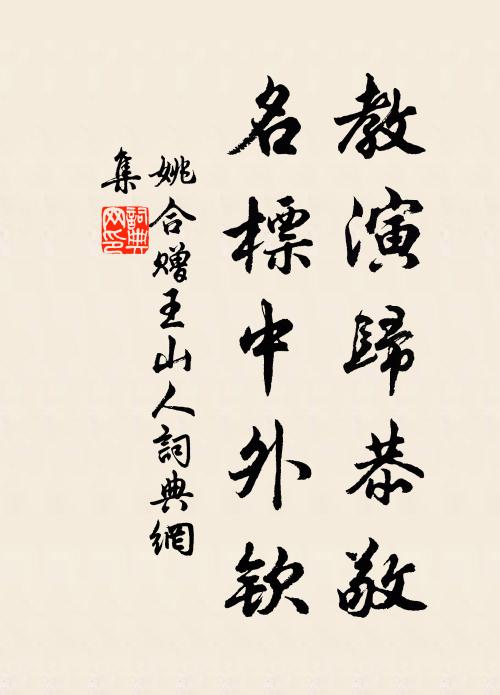 教演歸恭敬
名標中外欽
姚合贈王山人詞典網
集
詞典網印